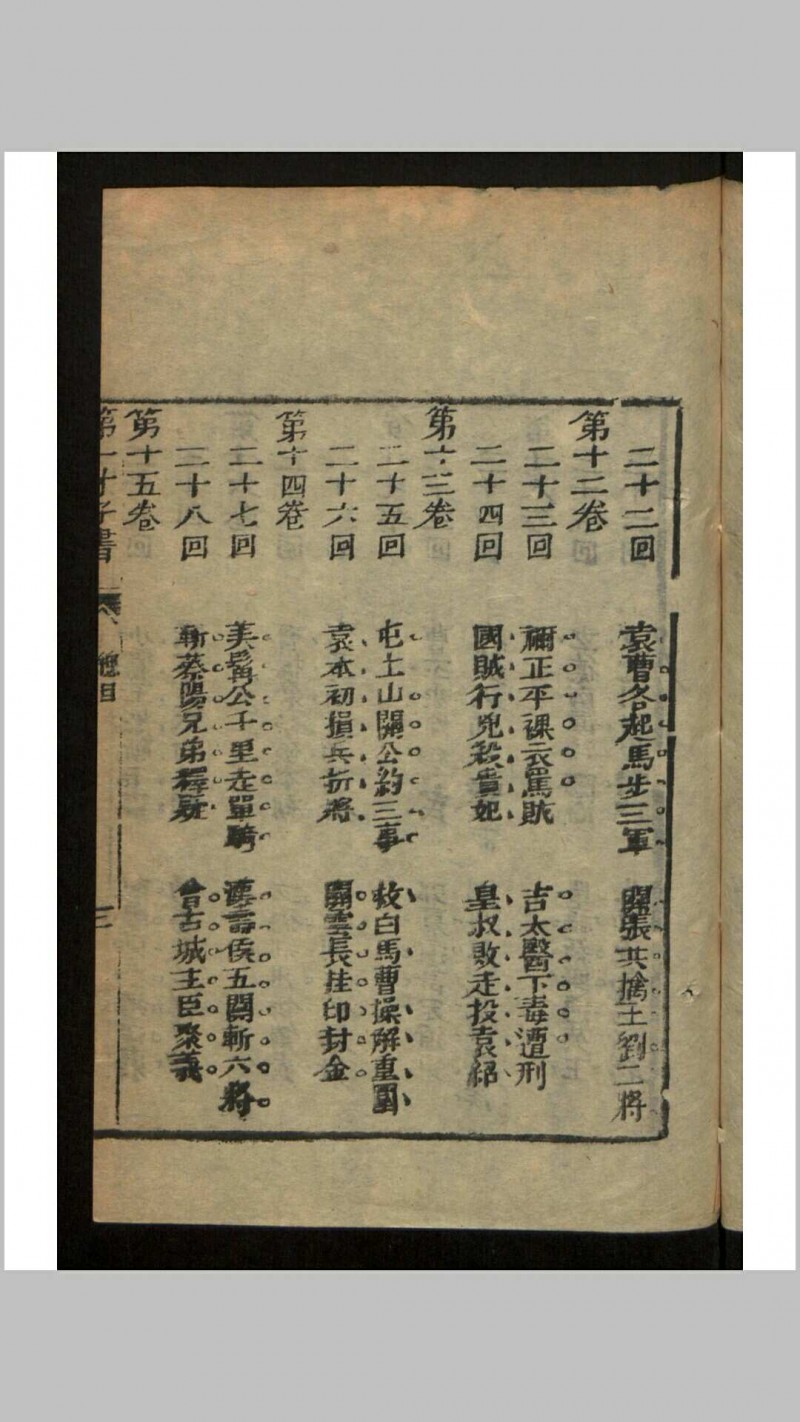 二十二回 袁曹各起馬步三軍 關張共擒王劉二將
第十二卷
二十三回 禰正平裸衣罵賊 吉太醫下毒遭刑
二十四回 國賊行兇殺貴妃 皇叔敗走投袁紹
第十三卷
二十五回 屯土山關公約三事 救白馬曹操解重圍
二十六回 袁本初損兵折將 關雲長挂印封金
第十四卷
二十七回 美髯公千里走單騎 漢壽侯五關斬六將
二十八回 斬蔡陽兄弟釋疑 會古城主臣聚義
第十五卷
第一才子書 總目 三